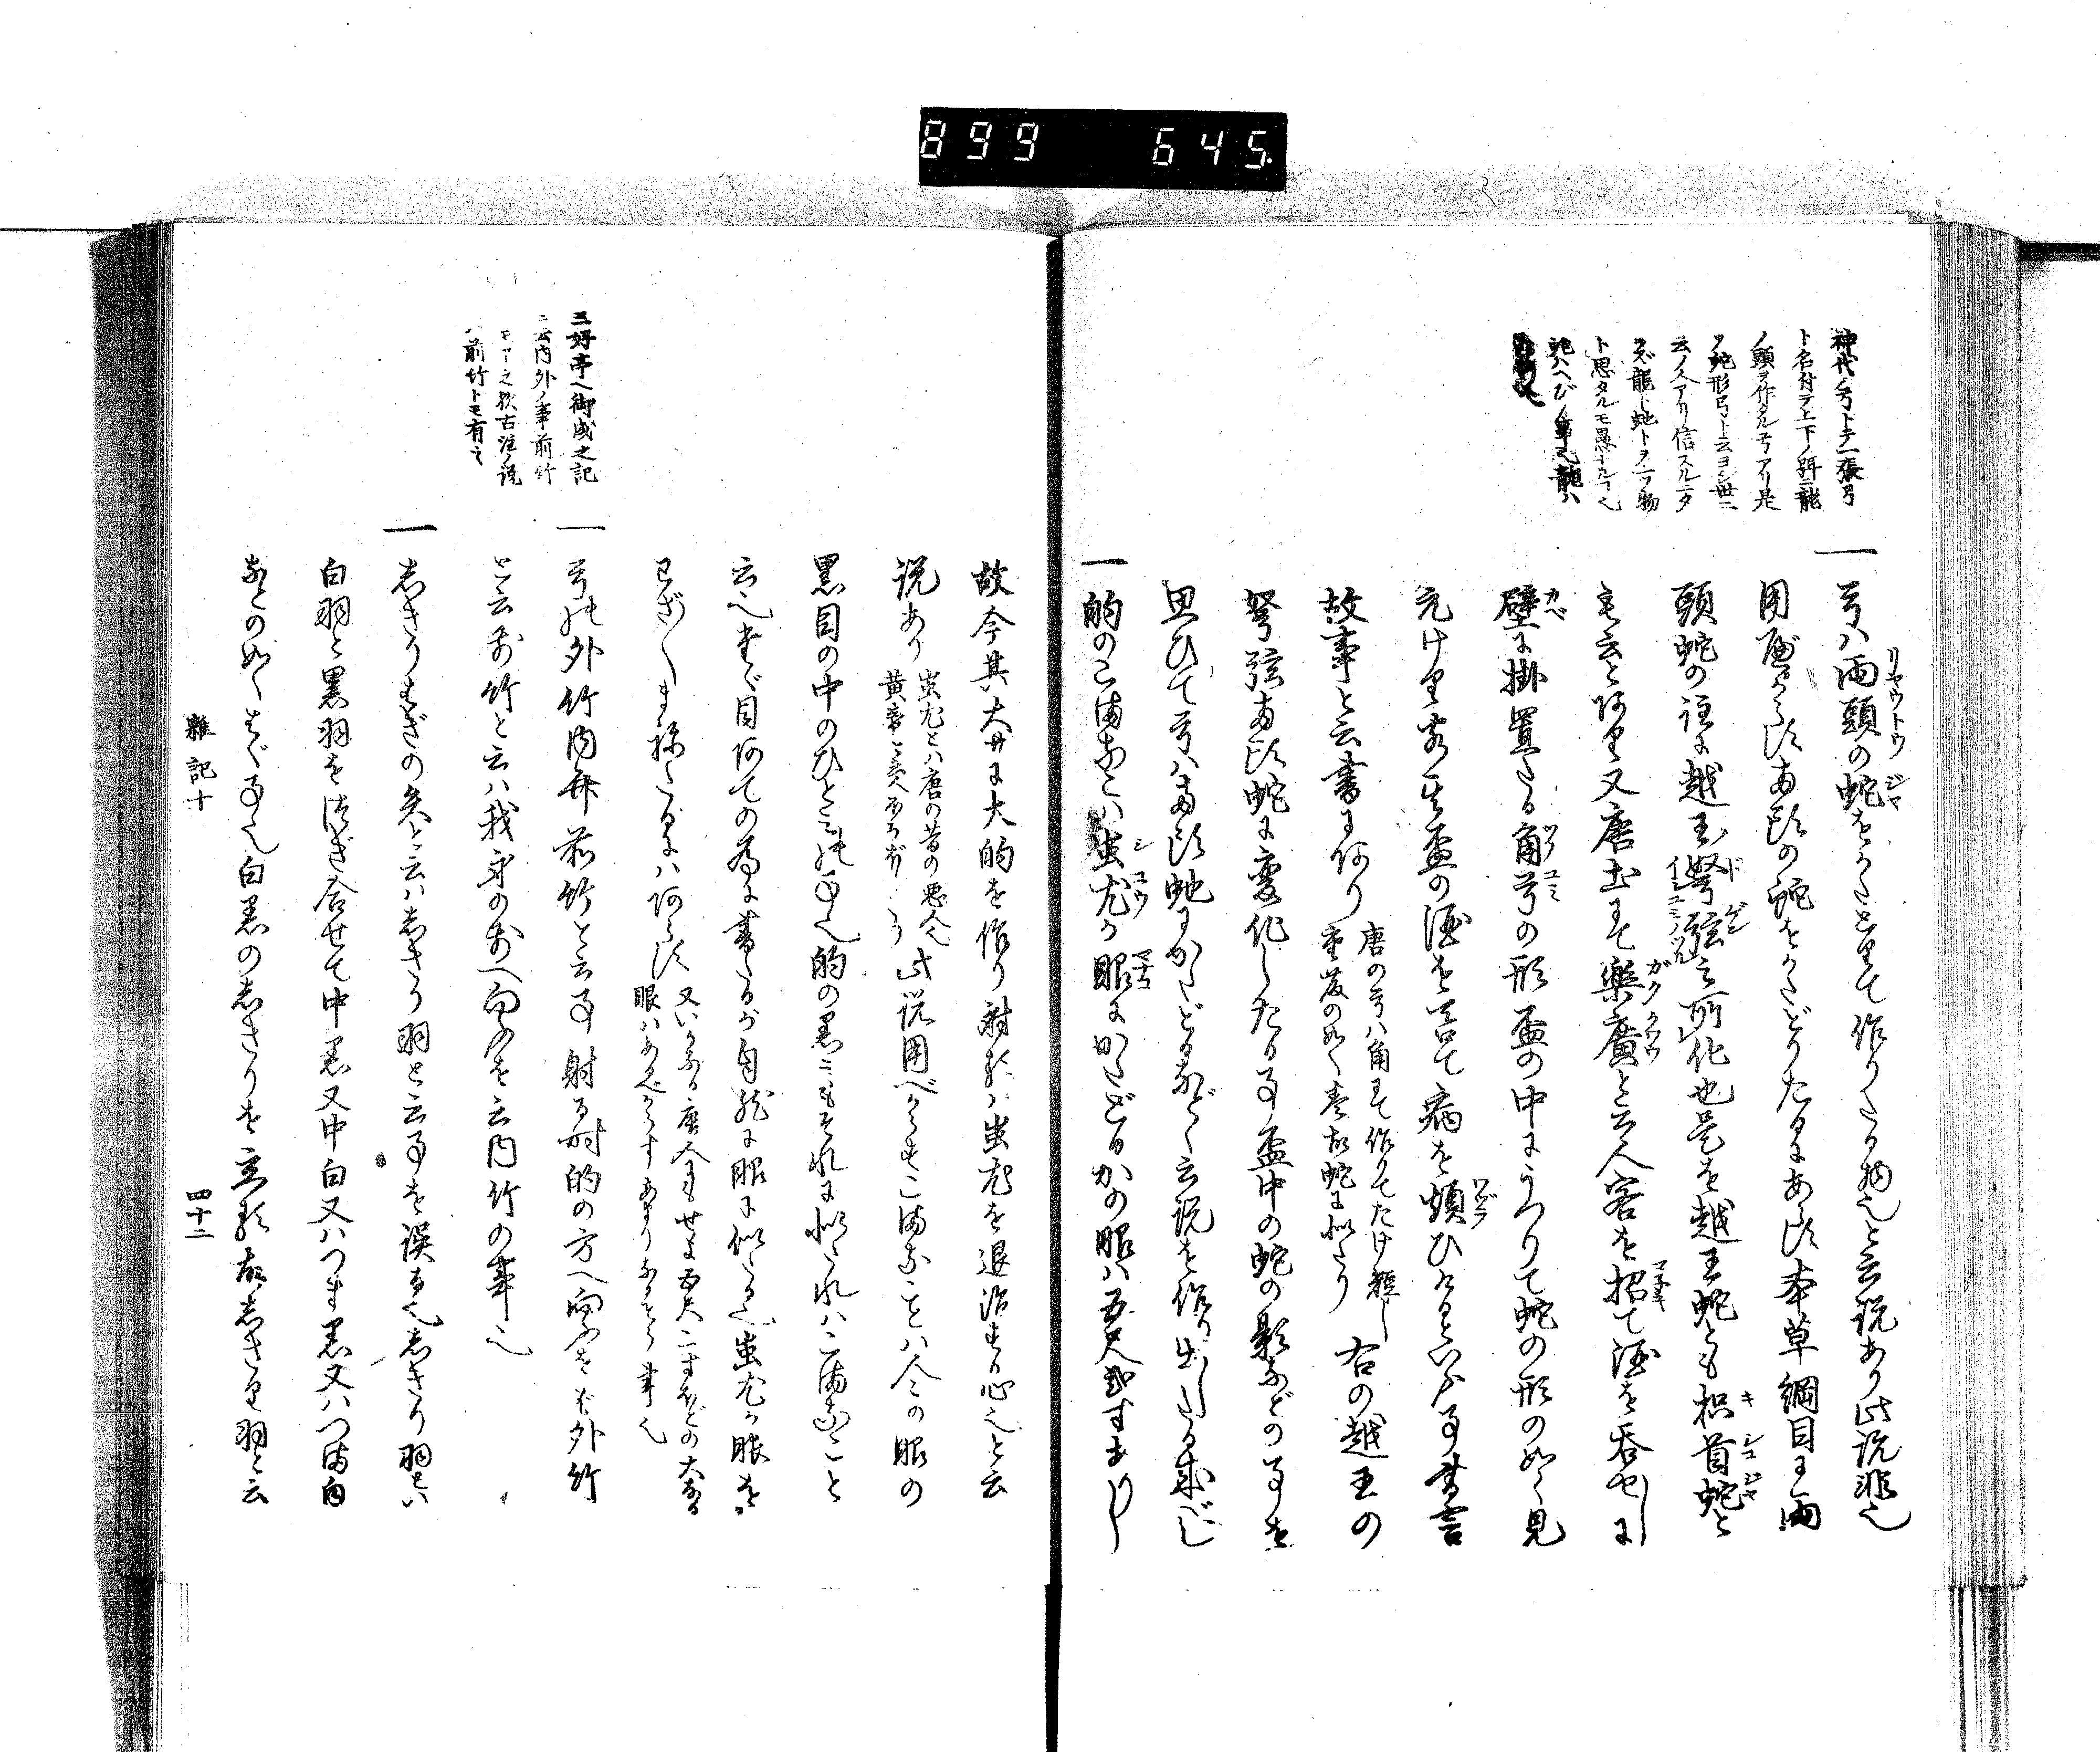 899 645
神代ノ弓トテ一張弓
ト名付テ上下ノ弭ニ龍
ノ頭ヲ作タル弓アリ是
ヲ蛇形弓ト云ヨシ世ニ
云ノ人アリ信スルニタ
ラズ龍ト蛇トヲ一ツ物
ト思タルモ愚ナルヿ也
蛇ハヘビノ事也龍ハ
一 弓ハ両頭の蛇をかたとりて作りたる物也と云説あり此説非也
用へからすあ頭の蛇をかたどりたるにあらす本草綱目ニ両
頭蛇の注に越王弩弦之所化也是を越王蛇とも枳首蛇と
も云とあり又唐土にて楽廣と云人客を招て酒を呑せしに
壁に掛置たる角弓の形盃の中にうつりて蛇の形の如く見
元けり客其盃の酒を呑て病を煩ひけるといふ事書言
故事と云書にあり 唐の弓ハ角にて作りてたけ短し
右の越王の
弩弦両頭蛇に変化したる事盃中の蛇の影などの事を
思ひて弓ハ両頭蛇にかたどるなどゝ云説を作り出したる成べし
一 的のこまなこハ蚩尤か眼にかたどるかの眼ハ五尺弐寸ありし
故今其大サに大的を作り射るハ蚩尤を退治する心也と云
説あり 蚩尤とハ唐の昔の悪人也
此説用べからすこまなことハ人の眼の
黒目の中のひとみの事也的の黒ミもそれに似たれハこまなこと
云也まづ目あての為に書たるが自然に眼に似たる也蚩尤か眼を
わざ〱まねたるにハあらす 又いかなる唐人にもせよ五尺二寸などの大なる
眼ハあるべからすあまりなるそら事也
一 弓の外竹内竹前竹と云事射る時的の方へ向ふを外竹
と云前竹と云ハ我身の前へ向のを云内竹の事也
一 志きりはぎの矢と云ハ志きり羽と云事を誤る也志きり羽とハ
白羽と黒羽を継ぎ合せて中黒又中白又ハつま黒又ハつま白
などの如くはぐ事也白黒の志きりを立る故志きり羽と云
三好亭ヘ御成之記
ニ云内外ノ事前竹
ハ前竹トモ有之
雑記十
四十二